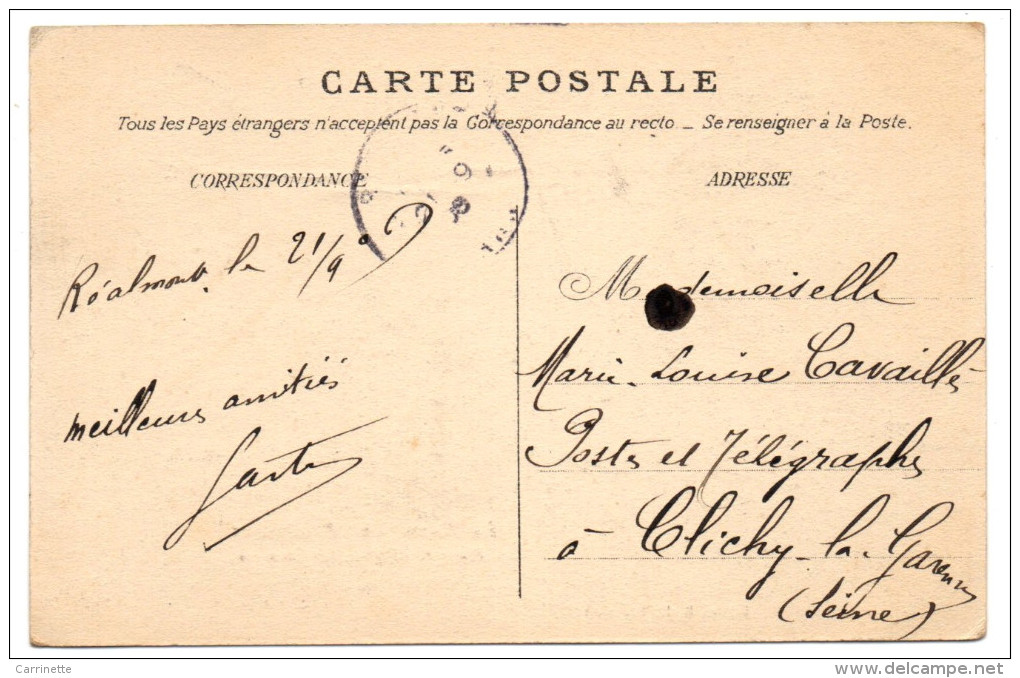 CARTE POSTALE
Tous les Pays étrangers n'acceptent pas la Correspondance au recto _ Se renseigner à la Poste.
CORRESPONDANCE
Réalmont le 21/9
meilleures amitiés
ADRESSE
Mademoiselle
Marie-Louise Cavaillés
Postes et Télégraphes
à Clichy-la-Garenne
(Seine)
Carrinette
www.delcampe.net